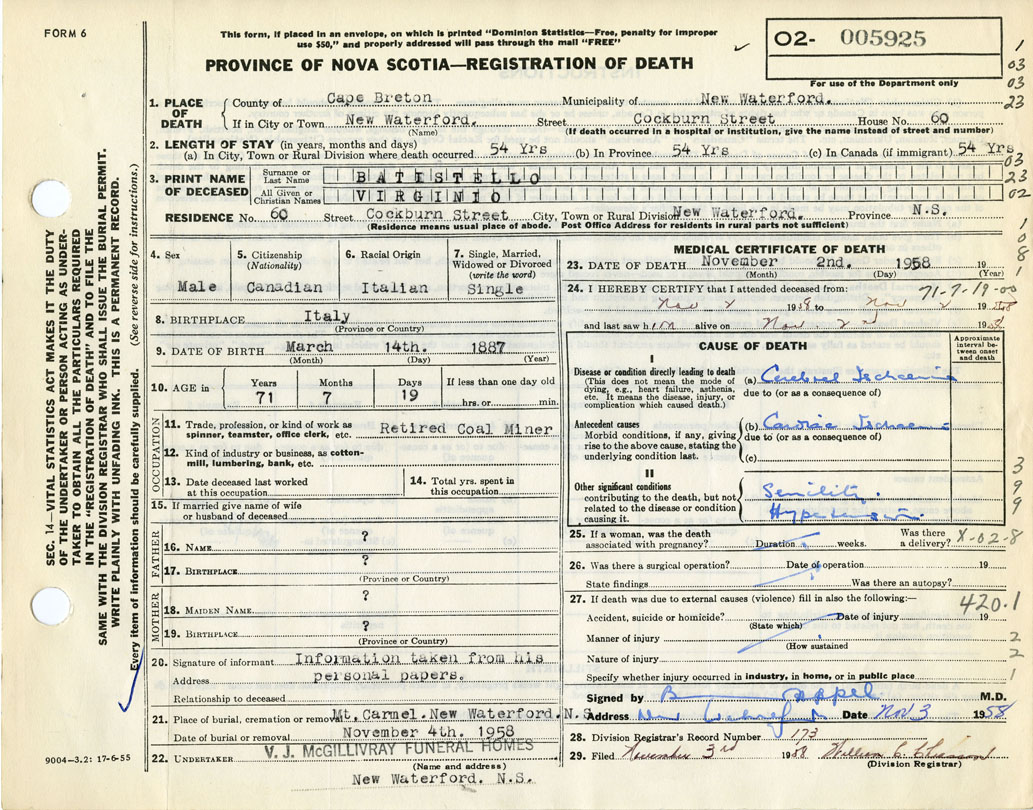 FORM 6
This form, if placed in an envelope, on which is printed "Dominion Statistics—Free, penalty for improper
use $50," and properly addressed will pass through the mail "FREE"
PROVINCE OF NOVA SCOTIA—REGISTRATION OF DEATH
02- 005925
For use of the Department only
1
03
03
23
1. PLACE OF DEATH
County of Cape Breton Municipality of New Waterford.
If in City or Town New Waterford. Street Cockburn Street House No. 60
(Name) (If death occurred in a hospital or institution, give the name instead of street and number)
2. LENGTH OF STAY (in years, months and days)
(a) In City, Town or Rural Division where death occurred 54 Yrs (b) In Province 54 Yrs (c) In Canada (if immigrant) 54 Yrs
03
3. PRINT NAME OF DECEASED
Surname or Last Name BATISTELLO
23
All Given or Christian Names VIRGINIO
02
RESIDENCE No. 60 Street Cockburn Street City, Town or Rural Division New Waterford. Province N.S.
(Residence means usual place of abode. Post Office Address for residents in rural parts not sufficient)
1
0
8
1
4. Sex
Male
5. Citizenship
(Nationality)
Canadian
6. Racial Origin
Italian
7. Single, Married,
Widowed or Divorced
(write the word)
Single
8. BIRTHPLACE Italy
(Province or Country)
9. DATE OF BIRTH March 14th. 1887
(Month) (Day) (Year)
10. AGE in
Years Months Days If less than one day old
71 7 19 hrs. or min.
OCCUPATION
11. Trade, profession, or kind of work as
spinner, teamster, office clerk, etc. Retired Coal Miner
12. Kind of industry or business, as cotton-
mill, lumbering, bank, etc.
13. Date deceased last worked
at this occupation
14. Total yrs. spent in
this occupation
15. If married give name of wife
or husband of deceased
FATHER
16. NAME ?
17. BIRTHPLACE ?
(Province or Country)
MOTHER
18. MAIDEN NAME ?
19. BIRTHPLACE ?
(Province or Country)
20. Signature of informant Information taken from his
Address personal papers.
Relationship to deceased
21. Place of burial, cremation or removal Mt. Carmel. New Waterford. N.S.
Date of burial or removal November 4th. 1958
22. UNDERTAKER V. J. McGILLIVRAY FUNERAL HOMES
(Name and address)
New Waterford. N.S.
MEDICAL CERTIFICATE OF DEATH
23. DATE OF DEATH November 2nd. 1958 19
(Month) (Day) (Year)
24. I HEREBY CERTIFY that I attended deceased from: 71-7-19-00
Nov 2 1958 to Nov 2 1958
and last saw him alive on Nov. 2nd 1958
CAUSE OF DEATH
Approximate interval be-
tween onset and death
I
Disease or condition directly leading to death
(This does not mean the mode of
dying, e.g., heart failure, asthenia,
etc. It means the disease, injury, or
complication which caused death.)
(a) Cerebral Ischaemia
due to (or as a consequence of)
Antecedent causes
Morbid conditions, if any, giving
rise to the above cause, stating the
underlying condition last.
(b) Cardiac Ischaemia
due to (or as a consequence of)
(c)
II
Other significant conditions
contributing to the death, but not
related to the disease or condition
causing it.
Senility.
Hypertension.
3
9
9
25. If a woman, was the death
associated with pregnancy? Duration weeks. Was there
a delivery? X-02-8
26. Was there a surgical operation? Date of operation 19
State findings Was there an autopsy?
27. If death was due to external causes (violence) fill in also the following:—
420.1
Accident, suicide or homicide? Date of injury 19
(State which)
Manner of injury
(How sustained
2
Nature of injury
2
Specify whether injury occurred in industry, in home, or in public place
1
Signed by B Appel M.D.
Address New Waterford Date Nov 3 1958
28. Division Registrar's Record Number 173
29. Filed November 3rd 1958 William C Chiasson
(Division Registrar)
SEC. 14—VITAL STATISTICS ACT MAKES IT THE DUTY
OF THE UNDERTAKER OR PERSON ACTING AS UNDER-
TAKER TO OBTAIN ALL THE PARTICULARS REQUIRED
IN THE "REGISTRATION OF DEATH" AND TO FILE THE
SAME WITH THE DIVISION REGISTRAR WHO SHALL ISSUE THE BURIAL PERMIT.
WRITE PLAINLY WITH UNFADING INK. THIS IS A PERMANENT RECORD.
Every item of information should be carefully supplied. (See reverse side for instructions.)
9004—3.2: 17-6-55